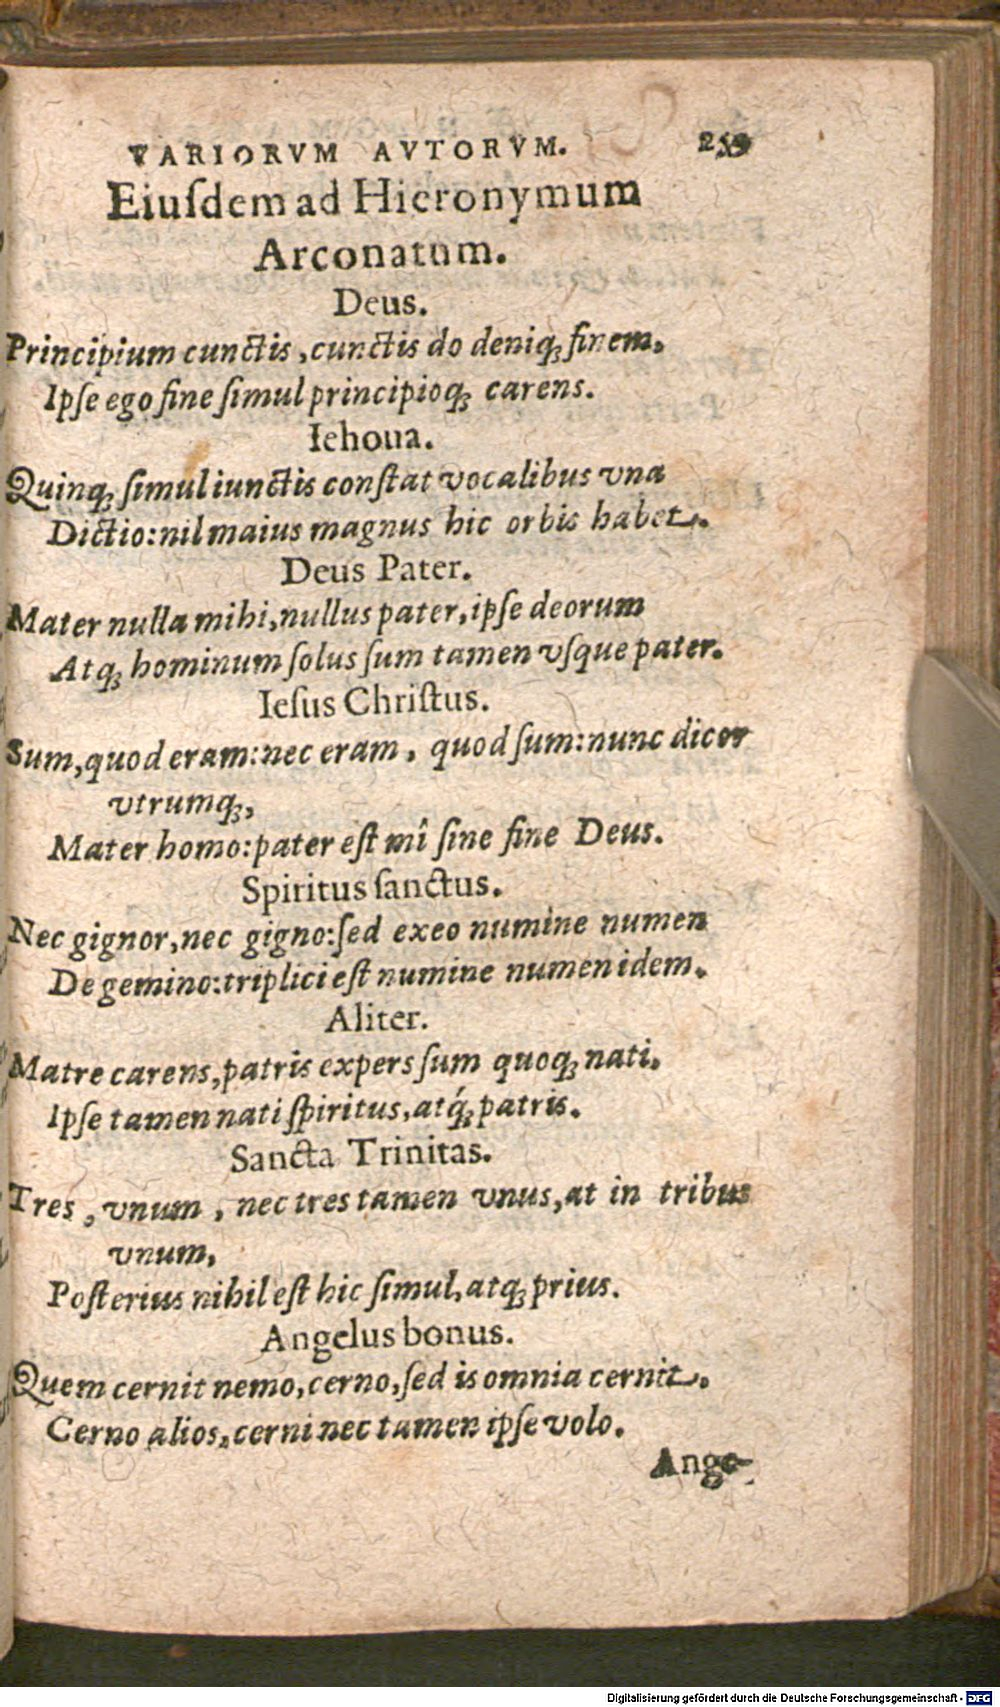 VARIORVM AVTORVM. 259
Eiuſdem ad Hieronymum
Arconatum.
Deus.
Principium cunctis, cunctis do deniq; finem.
Ipſe ego fine ſimul principioq; carens.
Iehoua.
Quinq; ſimul iunctis conſtat vocalibus vna
Dictio: nil maius magnus hic orbis habet.
Deus Pater.
Mater nulla mihi, nullus pater, ipſe deorum
Atq; hominum ſolus ſum tamen vſque pater.
Ieſus Chriſtus.
Sum, quod eram: nec eram, quod ſum: nunc dicor
vtrumq;,
Mater homo: pater eſt mî ſine fine Deus.
Spiritus ſanctus.
Nec gignor, nec gigno: ſed exeo numine numen
De gemino: triplici eſt numine numen idem.
Aliter.
Matre carens, patris expers ſum quoq; nati.
Ipſe tamen nati ſpiritus, atq́; patris.
Sancta Trinitas.
Tres, vnum, nec tres tamen vnus, at in tribus
vnum,
Poſterius nihil eſt hic ſimul, atq; prius.
Angelus bonus.
Quem cernit nemo, cerno, ſed is omnia cernit.
Cerno alios, cerni nec tamen ipſe volo.
Ange-
Digitalisierung gefördert durch die Deutsche Forschungsgemeinschaft - DFG